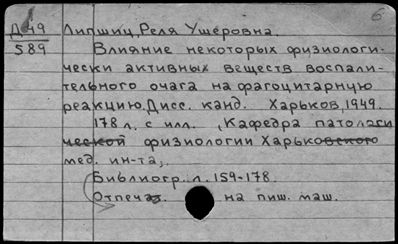 Д 49
589
Липшиц, Реля Ушеровна.
Влияние некоторых физиологи-
чески активных веществ воспали-
тельного очага на фагоцитарную
реакцию. Дисс. канд. Харьков, 1949.
178 л. с илл. (Кафедра патологи
ческой физиологии Харьковского
мед. ин-та,
Библиогр. л. 159-178.
Отпечат. на пиш. маш.